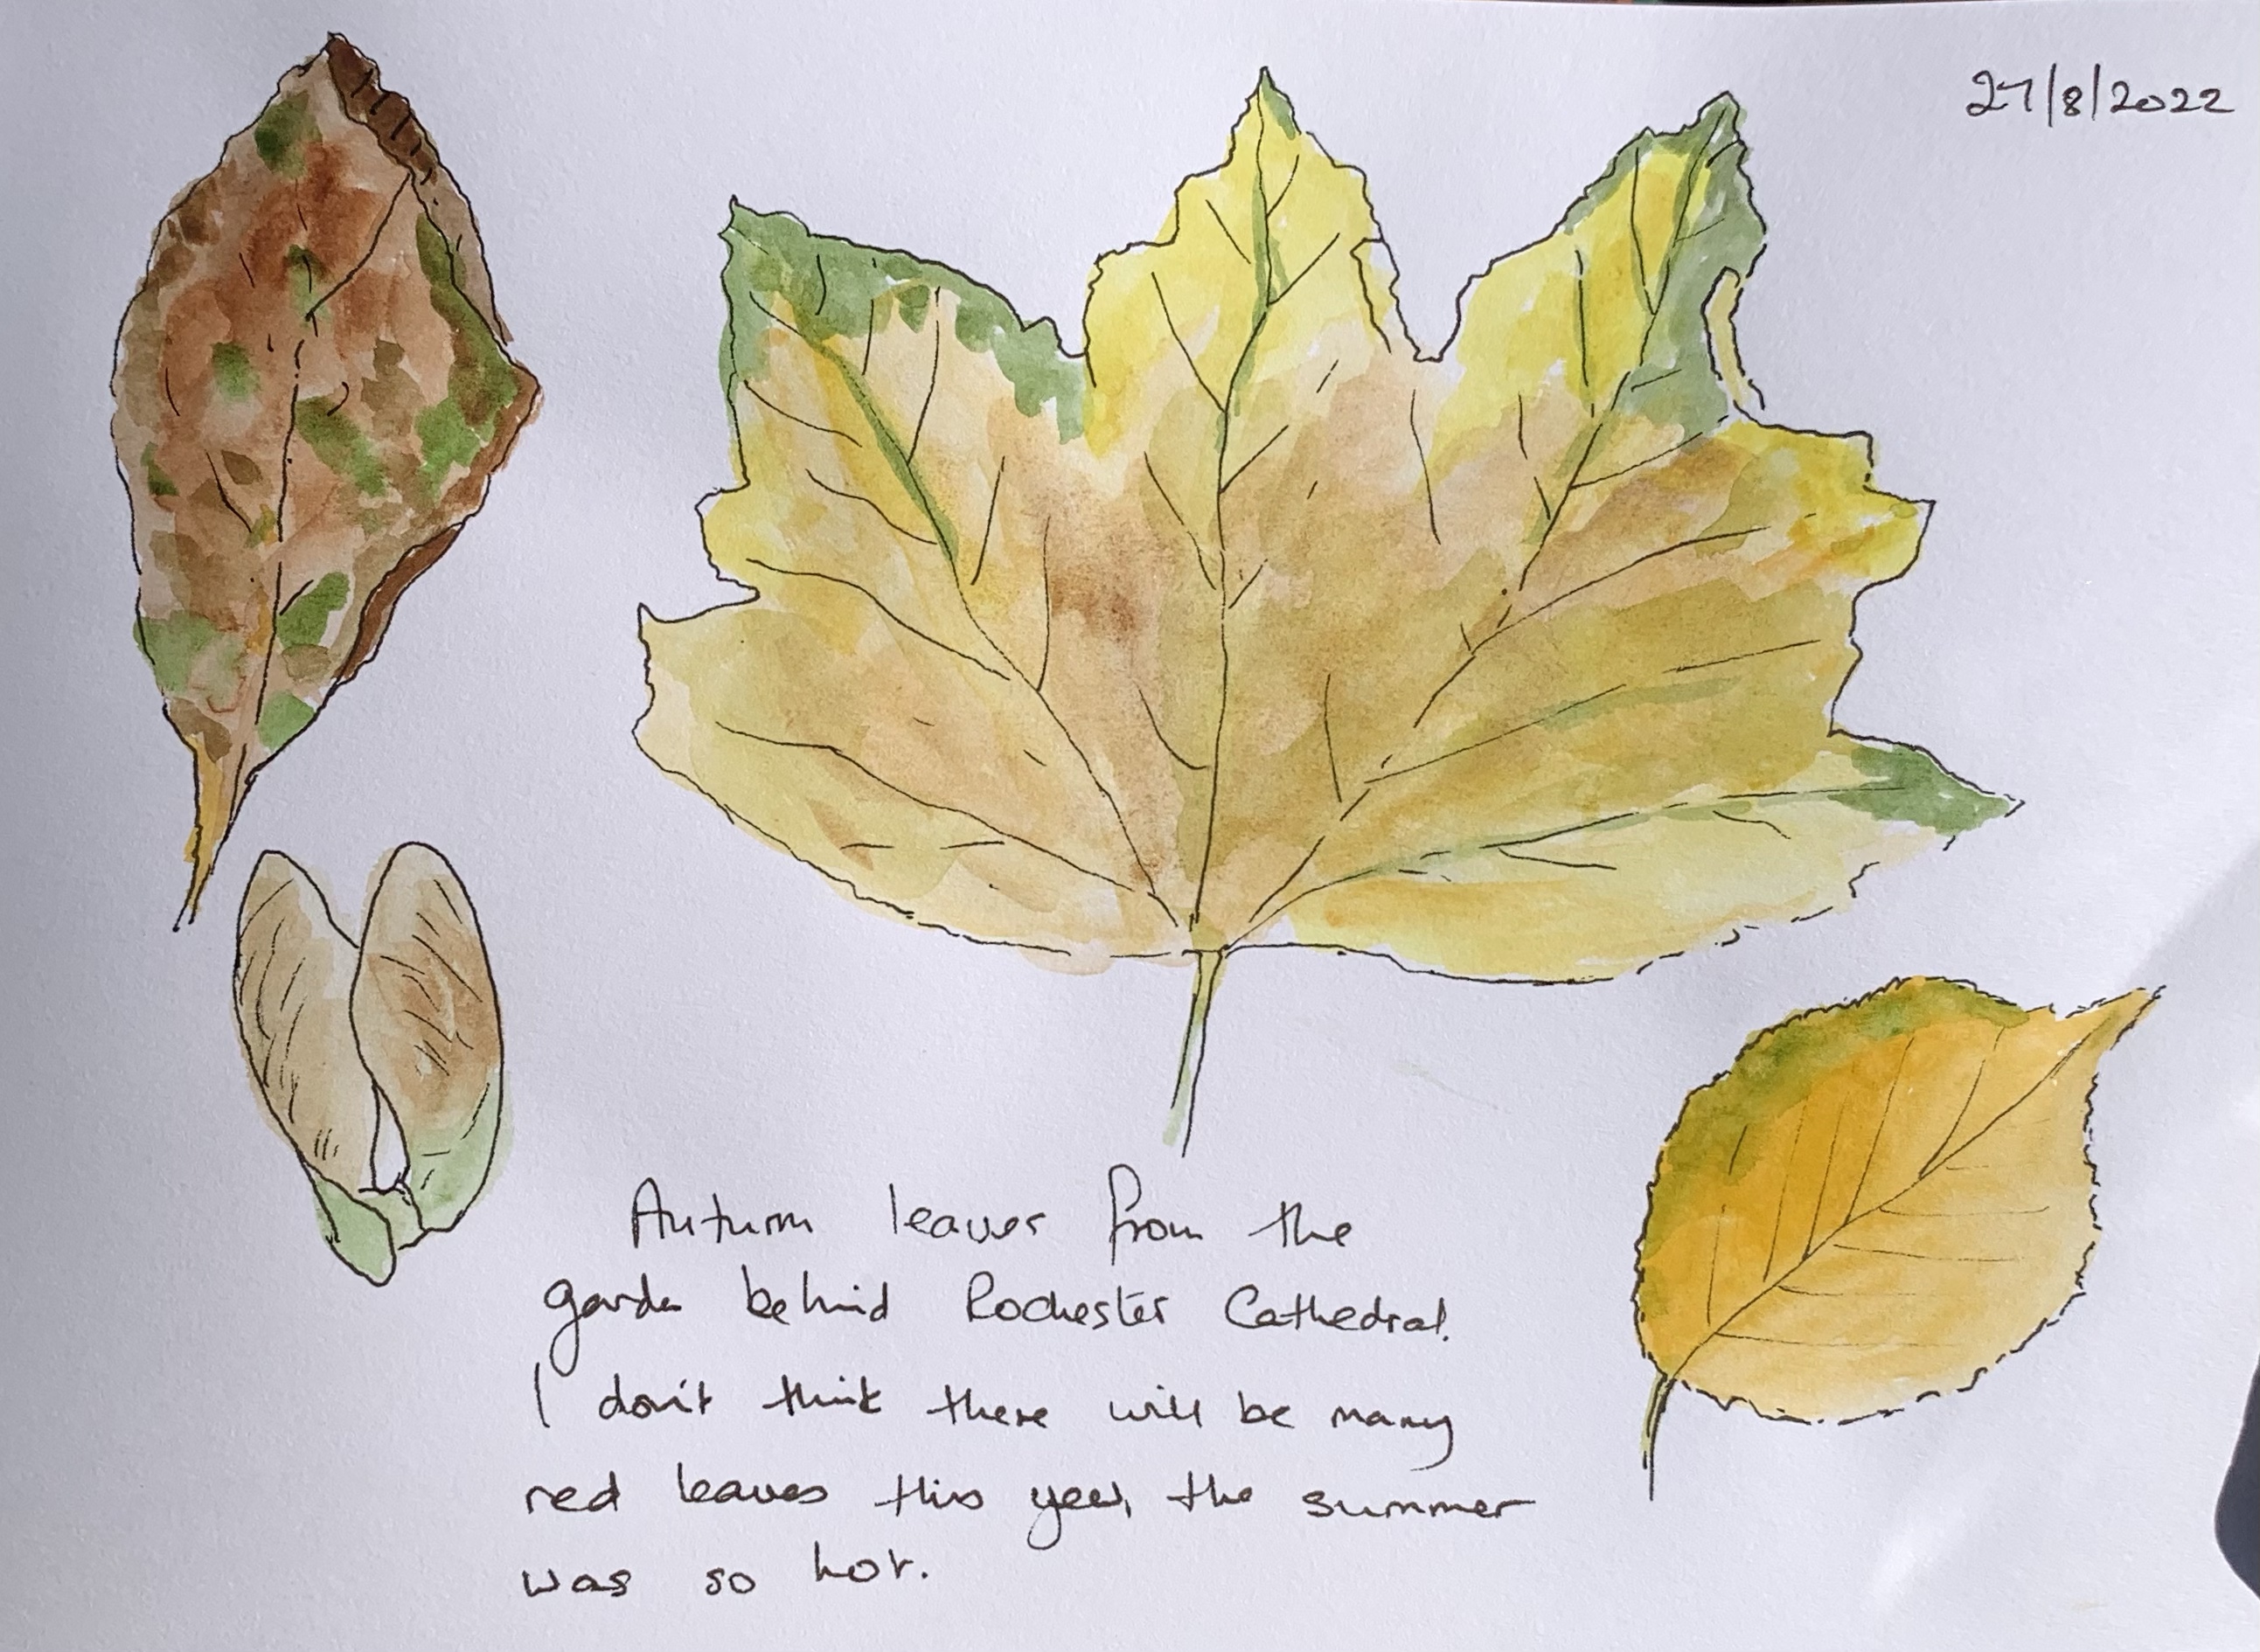 27/8/2022
Autumn leaves from the
garden behind Rochester Cathedral.
I don't think there will be many
red leaves this year, the summer
was so hot.